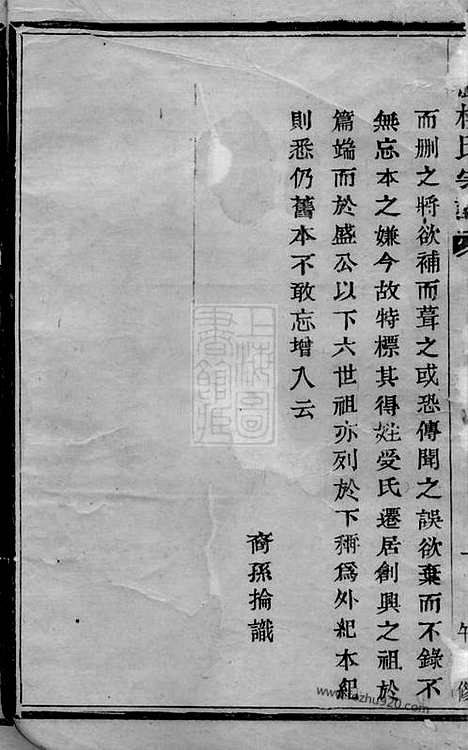 而删之將欲補而葺之或恐傳聞之誤欲棄而不錄不
無忘本之嫌今故特標其得姓受氏遷居創興之祖於
篇端而於盛公以下六世祖亦列於下稱爲外紀本紀
則悉仍舊本不敢忘增入云
裔孫掄識
上海圖書館藏